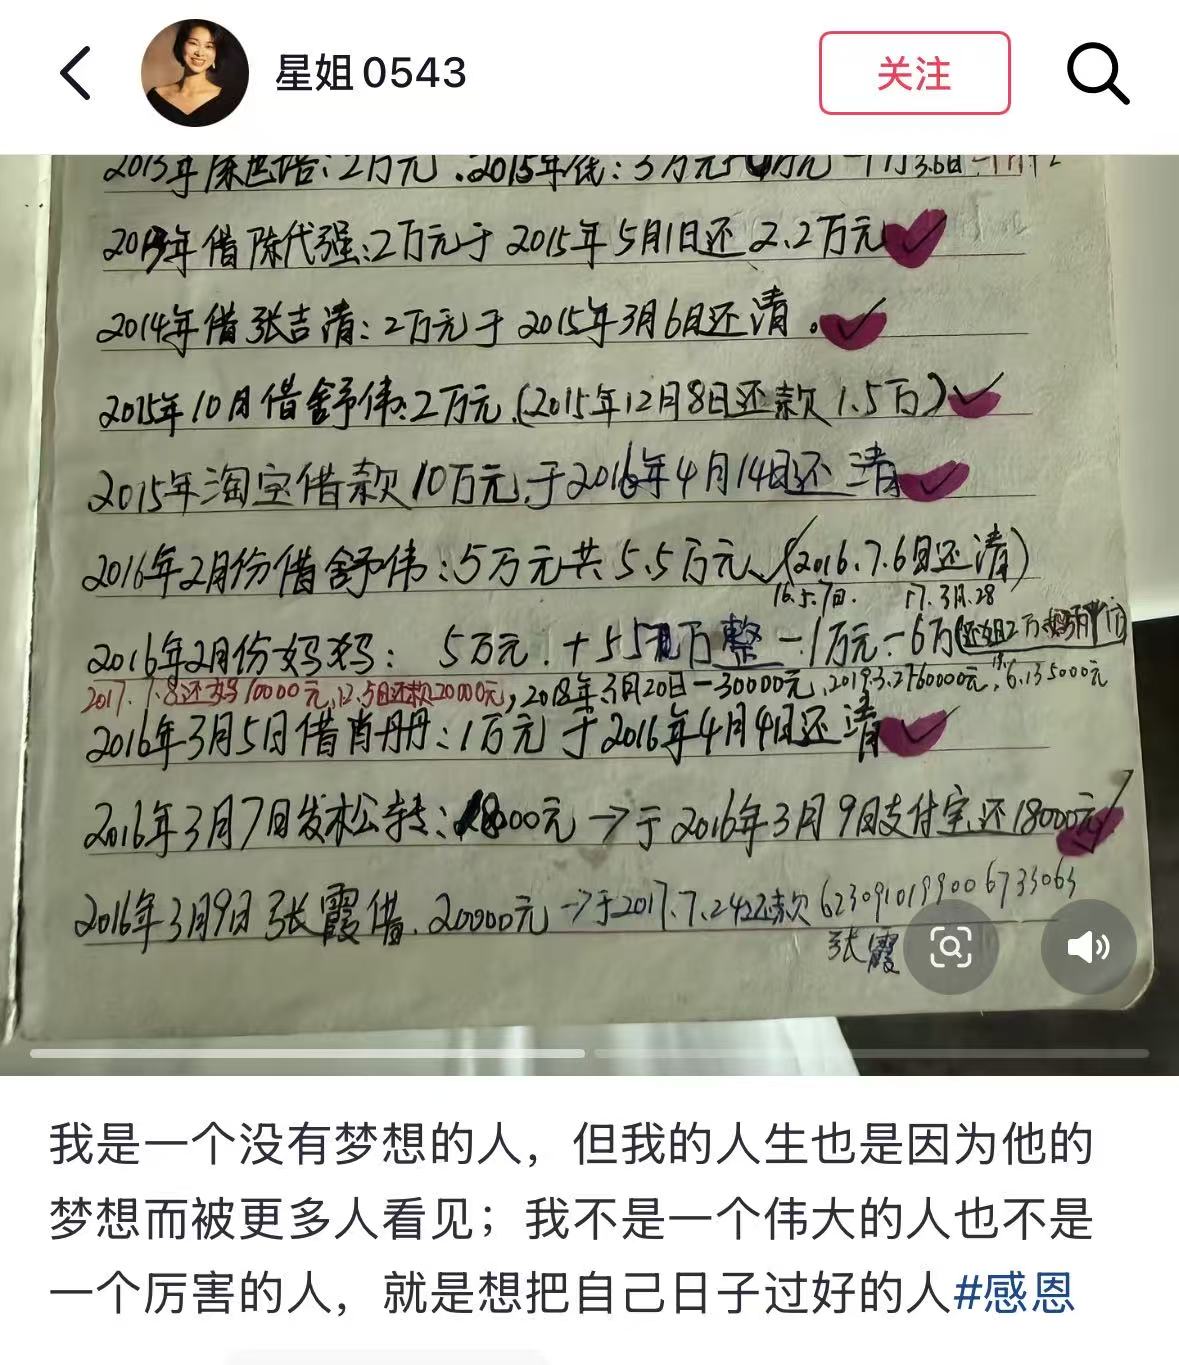 星姐0543
关注
2013年陈 :2万元.2015年 :3万元
2013年借陈代强:2万元于2015年5月1日还2.2万元
2014年借张吉清:2万元于2015年3月6日还清.
2015年10月借舒伟:2万元.(2015年12月8日还款1.5万)
2015年淘宝借款10万元.于2016年4月14日还清
2016年2月份借舒伟:5万元共5.5万元、(2016.7.6日还清)
16.5.7日. 17.3月.28
2016年2月份妈妈: 5万元.+5 万整-1万元-6万(还姐2万
2017.7.8还妈10000元,12.5日还款20000元,2018年3月20日-30000元,2019.3.2 60000元,6.13 5000元
2016年3月5日借肖丹丹:1万元于2016年4月4日还清
2016年3月7日发松转:18000元→于2016年3月9日支付宝还18000元
2016年3月9日张霞借.20000元→于2017.7.24还款6230910199006733063
张霞
我是一个没有梦想的人,但我的人生也是因为他的
梦想而被更多人看见;我不是一个伟大的人也不是
一个厉害的人,就是想把自己日子过好的人#感恩